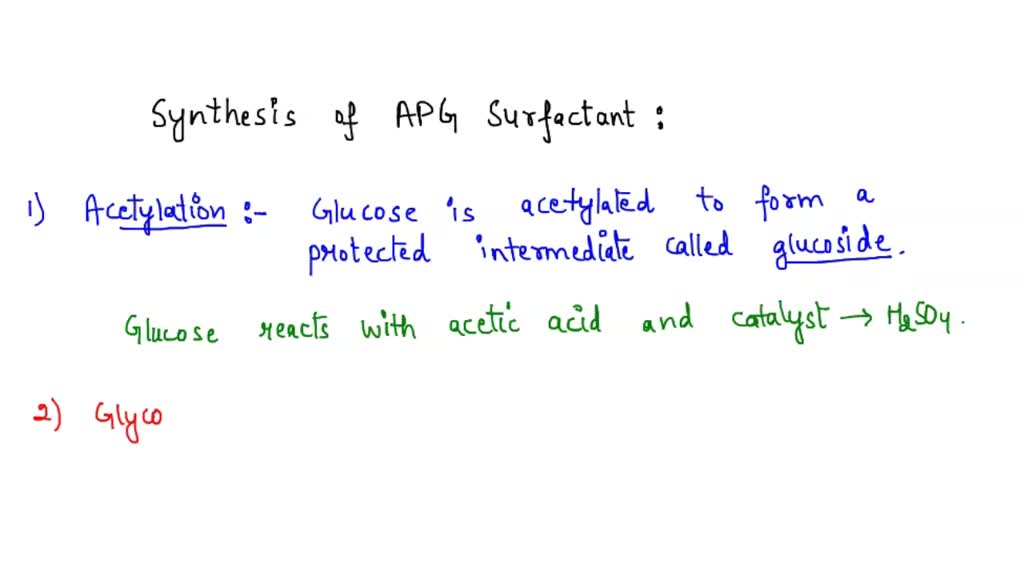 Synthesis of APG Surfactant :
1) Acetylation :- Glucose is acetylated to form a
protected intermediate called glucoside.
Glucose reacts with acetic acid and catalyst → H2SO4.
2) Glyco